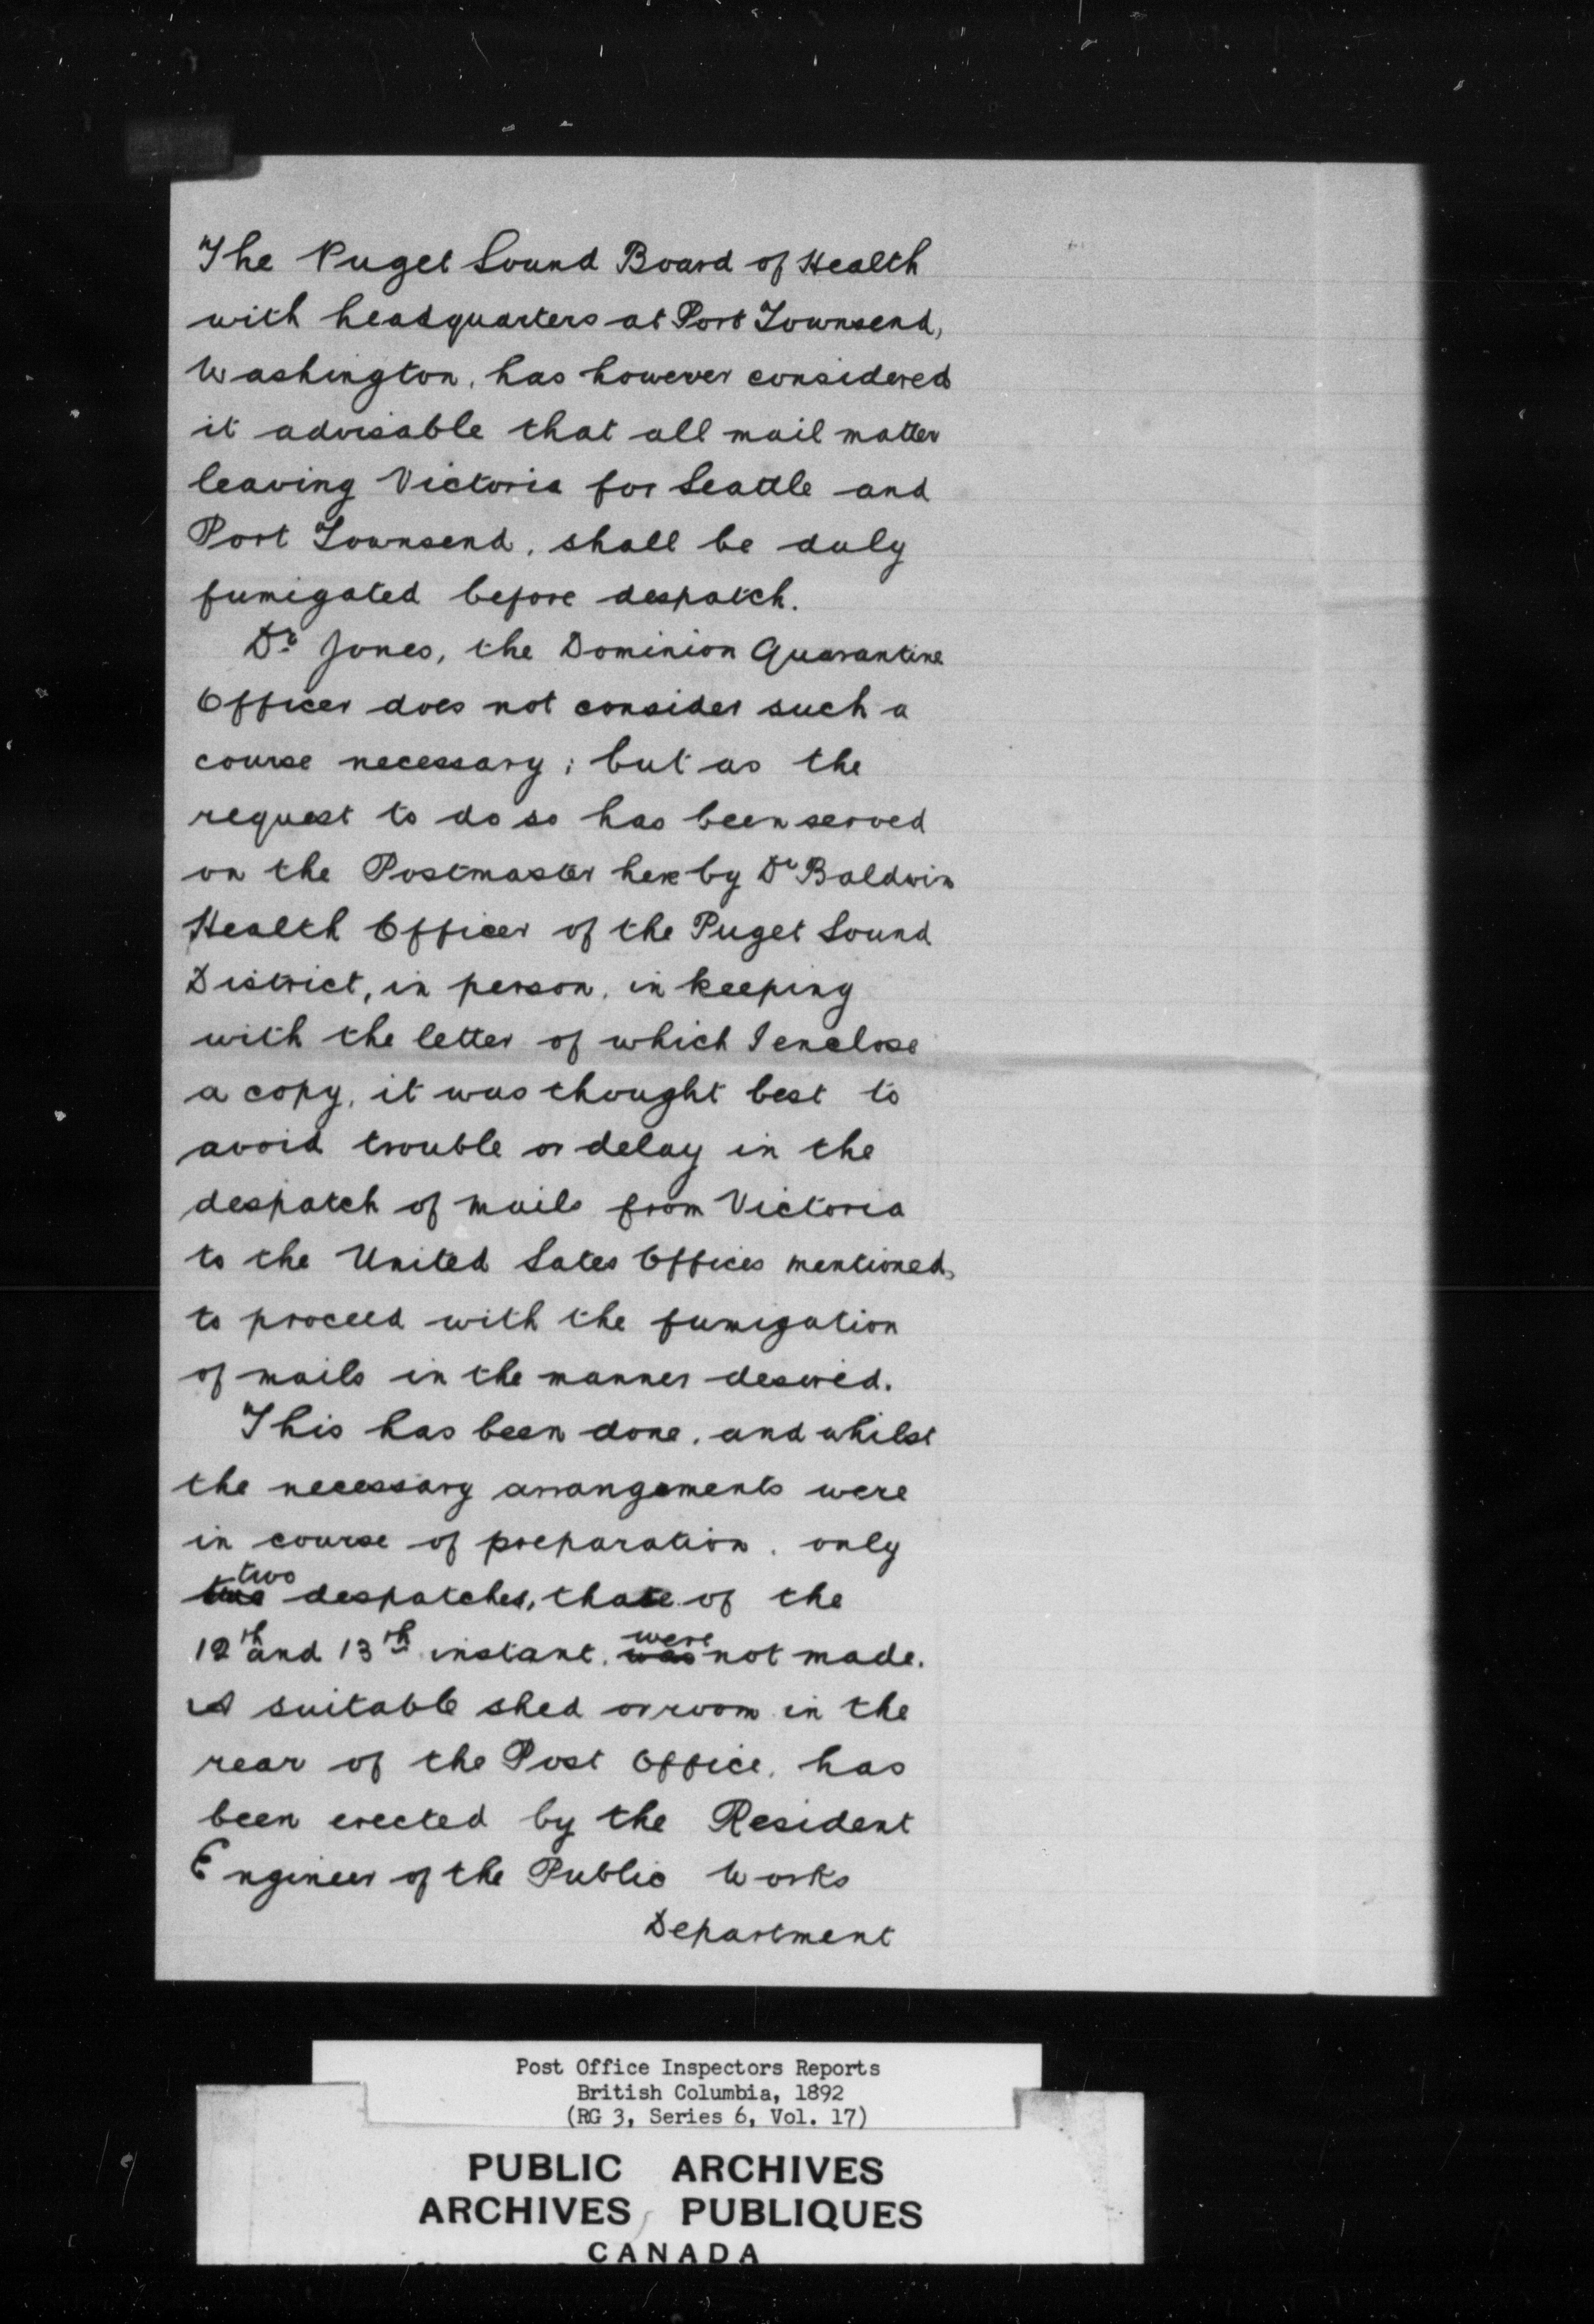 The Puget Sound Board of Health
with headquarters at Port Townsend,
Washington, has however considered
it advisable that all mail matter
leaving Victoria for Seattle and
Port Townsend, shall be duly
fumigated before despatch.
Dr. Jones, the Dominion Quarantine
Officer does not consider such a
course necessary; but as the
request to do so has been served
on the Postmaster here by Dr Baldwin
Health Officer of the Puget Sound
District, in person, in keeping
with the letter of which I enclose
a copy, it was thought best to
avoid trouble or delay in the
despatch of mails from Victoria
to the United Sates Offices mentioned,
to proceed with the fumigation
of mails in the manner desired.
This has been done, and whilst
the necessary arrangements were
in course of preparation, only
two despatches, those of the
12th and 13th instant, were was not made.
A suitable shed or room in the
rear of the Post Office, has
been erected by the Resident
Engineer of the Public Works
Department
Post Office Inspectors Reports
British Columbia, 1892
(RG 3, Series 6, Vol. 17)
PUBLIC ARCHIVES
ARCHIVES PUBLIQUES
CANADA